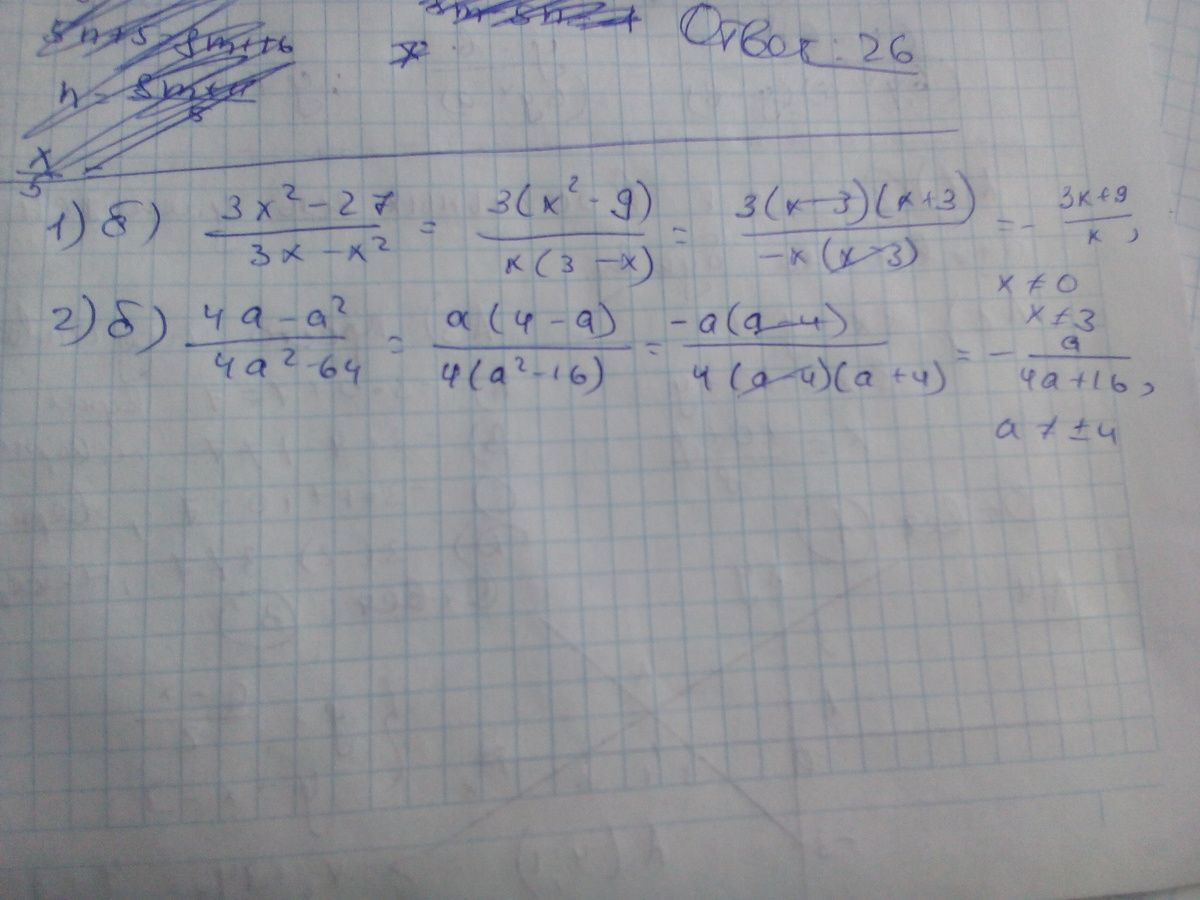 Ответ: 26
1) б) (3x² - 27)/(3x - x²) = 3(x² - 9)/(x(3 - x)) = 3(x - 3)(x + 3)/(-x(x - 3)) = - (3x + 9)/x,
x ≠ 0
x ≠ 3
2) б) (4a - a²)/(4a² - 64) = a(4 - a)/(4(a² - 16)) = -a(a - 4)/(4(a - 4)(a + 4)) = - a/(4a + 16),
a ≠ ±4